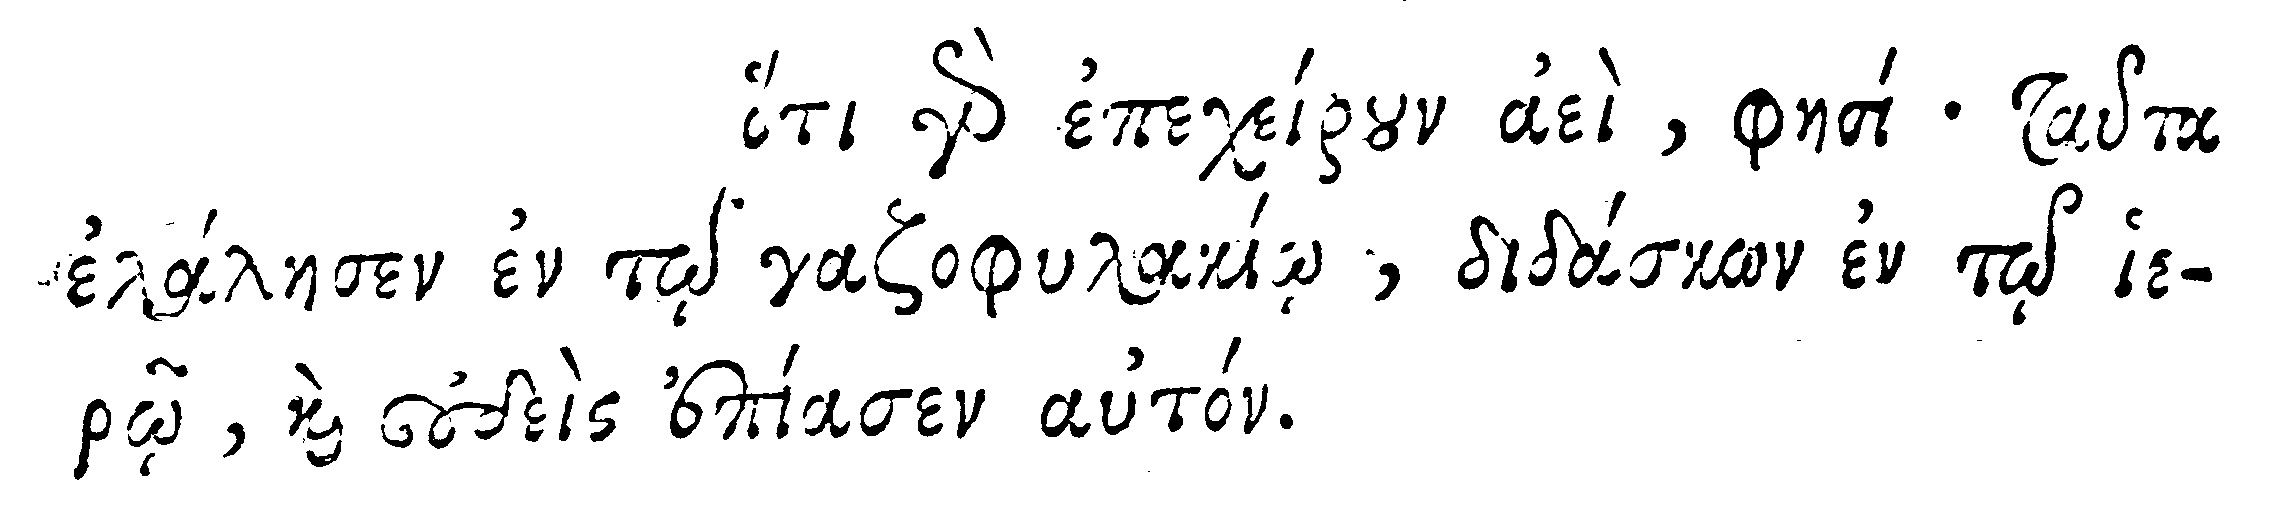 ὅτι γὰρ ἐπεχείρουν ἀεὶ, φησί· Ταῦτα
ἐλάλησεν ἐν τῷ γαζοφυλακίῳ, διδάσκων ἐν τῷ ἱε-
ρῷ, καὶ οὐδεὶς ἐπίασεν αὐτόν.